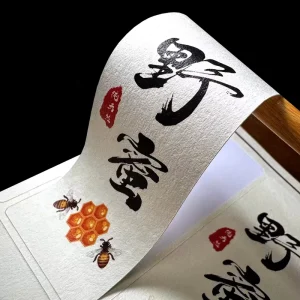 野
蜜
野
蜜